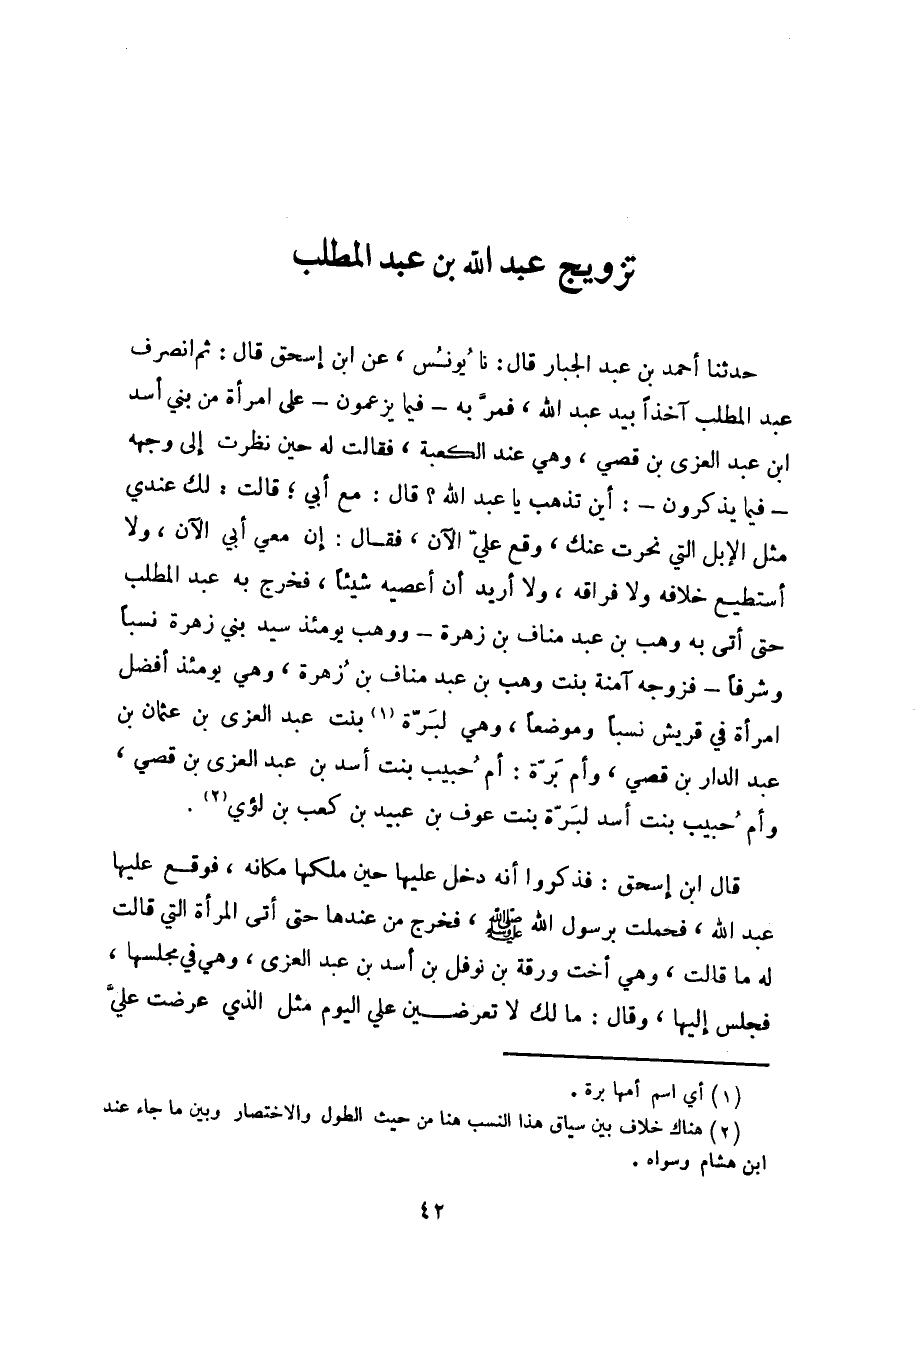 تزويج عبد الله بن عبد المطلب
حدثنا أحمد بن عبد الجبار قال : نا يُونُس ، عن ابن إسحق قال : ثم انصرف
عبد المطلب آخذاً بيد عبد الله ، فمرَّ به – فيما يزعمون – على امرأة من بني أسد
ابن عبد العزى بن قصي ، وهي عند الكعبة ، فقالت له حين نظرت إلى وجهه
– فيما يذكرون – : أين تذهب يا عبد الله ؟ قال : مع أبي ؛ قالت : لك عندي
مثل الإبل التي نحرت عنك ، وقع عليّ الآن ، فقال : إن معي أبي الآن ، ولا
أستطيع خلافه ولا فراقه ، ولا أريد أن أعصيه شيئاً ، فخرج به عبد المطلب
حتى أتى به وهب بن عبد مناف بن زهرة – ووهب يومئذ سيد بني زهرة نسباً
وشرفاً – فزوجه آمنة بنت وهب بن عبد مناف بن زُهرة ، وهي يومئذ أفضل
امرأة في قريش نسباً وموضعاً ، وهي لبَرّة (١) بنت عبد العزى بن عثمان بن
عبد الدار بن قصي ، وأم بَرّة : أم حُبيب بنت أسد بن عبد العزى بن قصي ،
وأم حُبيب بنت أسد لبَرّة بنت عوف بن عبيد بن كعب بن لؤي(٢) .
قال ابن إسحق : فذكروا أنه دخل عليها حين ملكها مكانه ، فوقع عليها
عبد الله ، فحملت برسول الله ﷺ ، فخرج من عندها حتى أتى المرأة التي قالت
له ما قالت ، وهي أخت ورقة بن نوفل بن أسد بن عبد العزى ، وهي في مجلسها ،
فجلس إليها ، وقال : ما لك لا تعرضين علي اليوم مثل الذي عرضت عليَّ
(١) أي اسم أمها برة .
(٢) هناك خلاف بين سياق هذا النسب هنا من حيث الطول والاختصار وبين ما جاء عند
ابن هشام وسواه .
٤٢